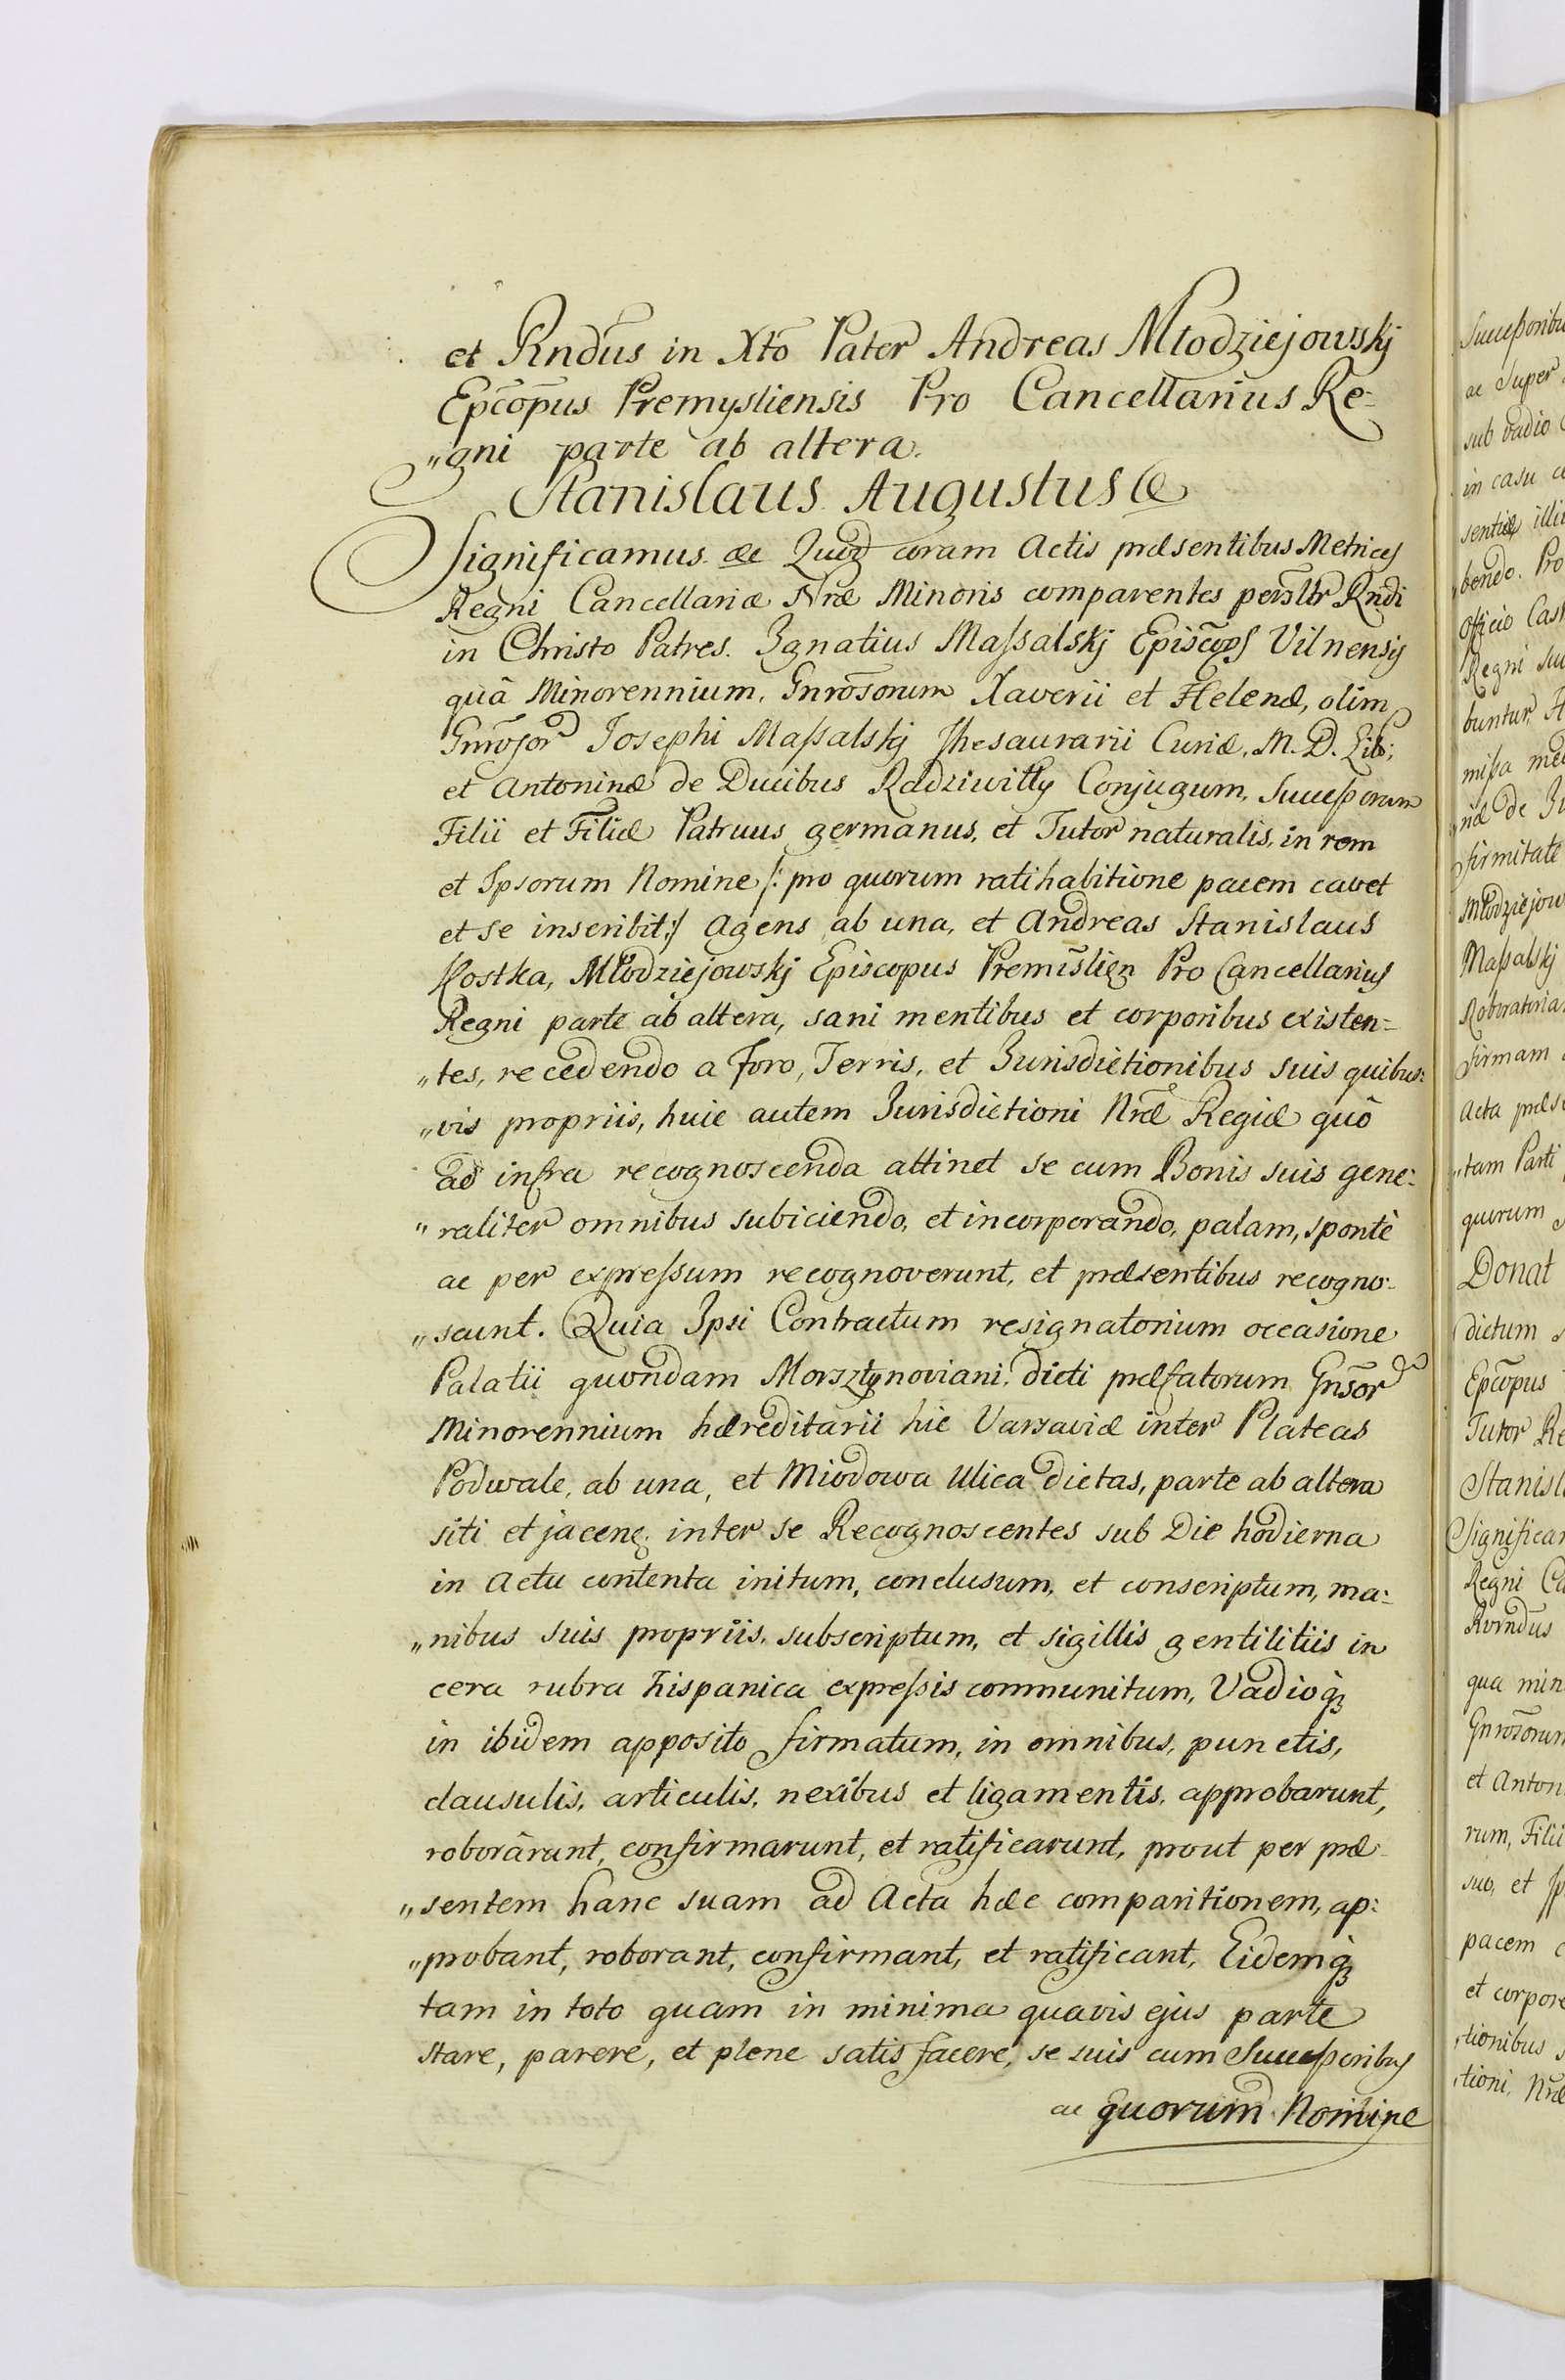 et Rndūs in Xtō Pater Andreas Młodziejowskj
Epcōpus Premysliensis Pro Cancellarius Re=
„gni parte ab altera.
Stanislaus Augustus &
Significamus &c Quod coram Actis præsentibus Metrices
Regni Cancellariæ Nræ Minoris comparentes persltr Rndi
in Christo Patres. Ignatius Maſsalskj Episcops Vilnensis
quâ Minorennium, Gnrosorum Xaverii et Helenæ, olim
Gnrosor Josephi Maſsalskj Thesaurarii Curiæ, M. D. Lit:
et Antoninæ de Ducibus Radziwiłły Conjugum, Succeſsorum
Filii et Filiæ Patruus germanus, et Tutor naturalis, in rem
et Ipsorum Nomine /: pro quorum ratihabitione pacem cavet
et se inscribit :/ Agens ab una, et Andreas Stanislaus
Kostka, Młodziejowskj Episcopus Premislien Pro Cancellarius
Regni parte ab altera, sani mentibus et corporibus existen=
„tes, recedendo a Foro, Terris, et Jurisdictionibus suis quibus:
„vis propriis, huic autem Jurisdictioni Nræ Regiæ quô
ad infra recognoscenda attinet se cum Bonis suis gene:
„raliter omnibus subiciendo, et incorporando, palam, spontè
ac per expreſsum recognoverunt, et præsentibus recogno:
„scunt. Quia Ipsi Contractum resignatorium occasione
Palatii quondam Morsztynoviani dicti præfatorum Gnsor
Minorennium hæreditarii hic Varsaviæ inter Plateas
Podwale, ab una, et Miodowa Ulica dictas, parte ab altera
siti et jacen: inter se Recognoscentes sub Die hodierna
in Actu contenta initum, conclusum, et conscriptum, ma:
„nibus suis propriis, subscriptum, et sigillis gentilitiis in
cera rubra hispanica expreſsis communitum, Vadioq;
in ibidem apposito firmatum, in omnibus, punctis,
clausulis, articulis, nexibus et ligamentis, approbarunt,
roborârunt, confirmarunt, et ratificarunt, prout per præ
„sentem hanc suam ad Acta hæc comparitionem, ap:
„probant, roborant, confirmant, et ratificant, Eidemq;
tam in toto quam in minima quavis ejus parte
stare, parere, et plene satis facere, se suis cum Succeſsoribus
ac quorum Nomine
Succeſsoribu
ac super
sub vadio
in casu
sentiæ illi
bendo. Pro
Officio Cast
Regni su
buntur, H
miſsa med
næ de
firmitate
Młodziejow
Maſsalskj
Roboratoria
firmam
Acta præs
„tam Parti
quorum
Donat
dictum
Epcōpus
Tutor Re
Stanisl
Significam
Regni Ca
Rvrndus
qua min
Gnrosorum
et Anton
rum, Filii
suo, et Ip
pacem c
et corpore
„tionibus s
„tioni, Nræ